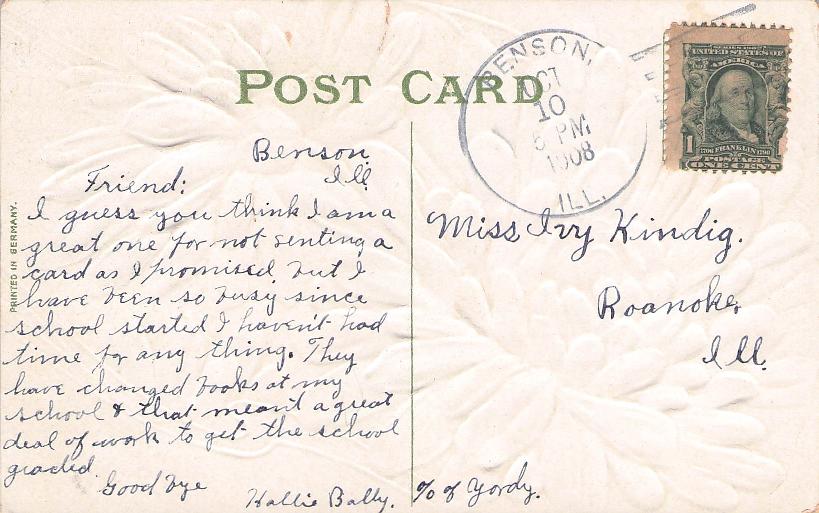 POST CARD
BENSON,
OCT
10
5 PM
1908
ILL.
SERIES 1902
UNITED STATES OF
AMERICA
1
1706 FRANKLIN 1790
1
POSTAGE
ONE CENT
PRINTED IN GERMANY.
Benson
Ill.
Friend:
I guess you think I am a
great one for not senting a
card as I promised but I
have been so busy since
school started I haven't had
time for any thing. They
have changed books at my
school & that meant a great
deal of work to get the school
graded
Good bye
Hallie Bally.
Miss Ivy Kindig.
Roanoke,
Ill.
% of Yordy.